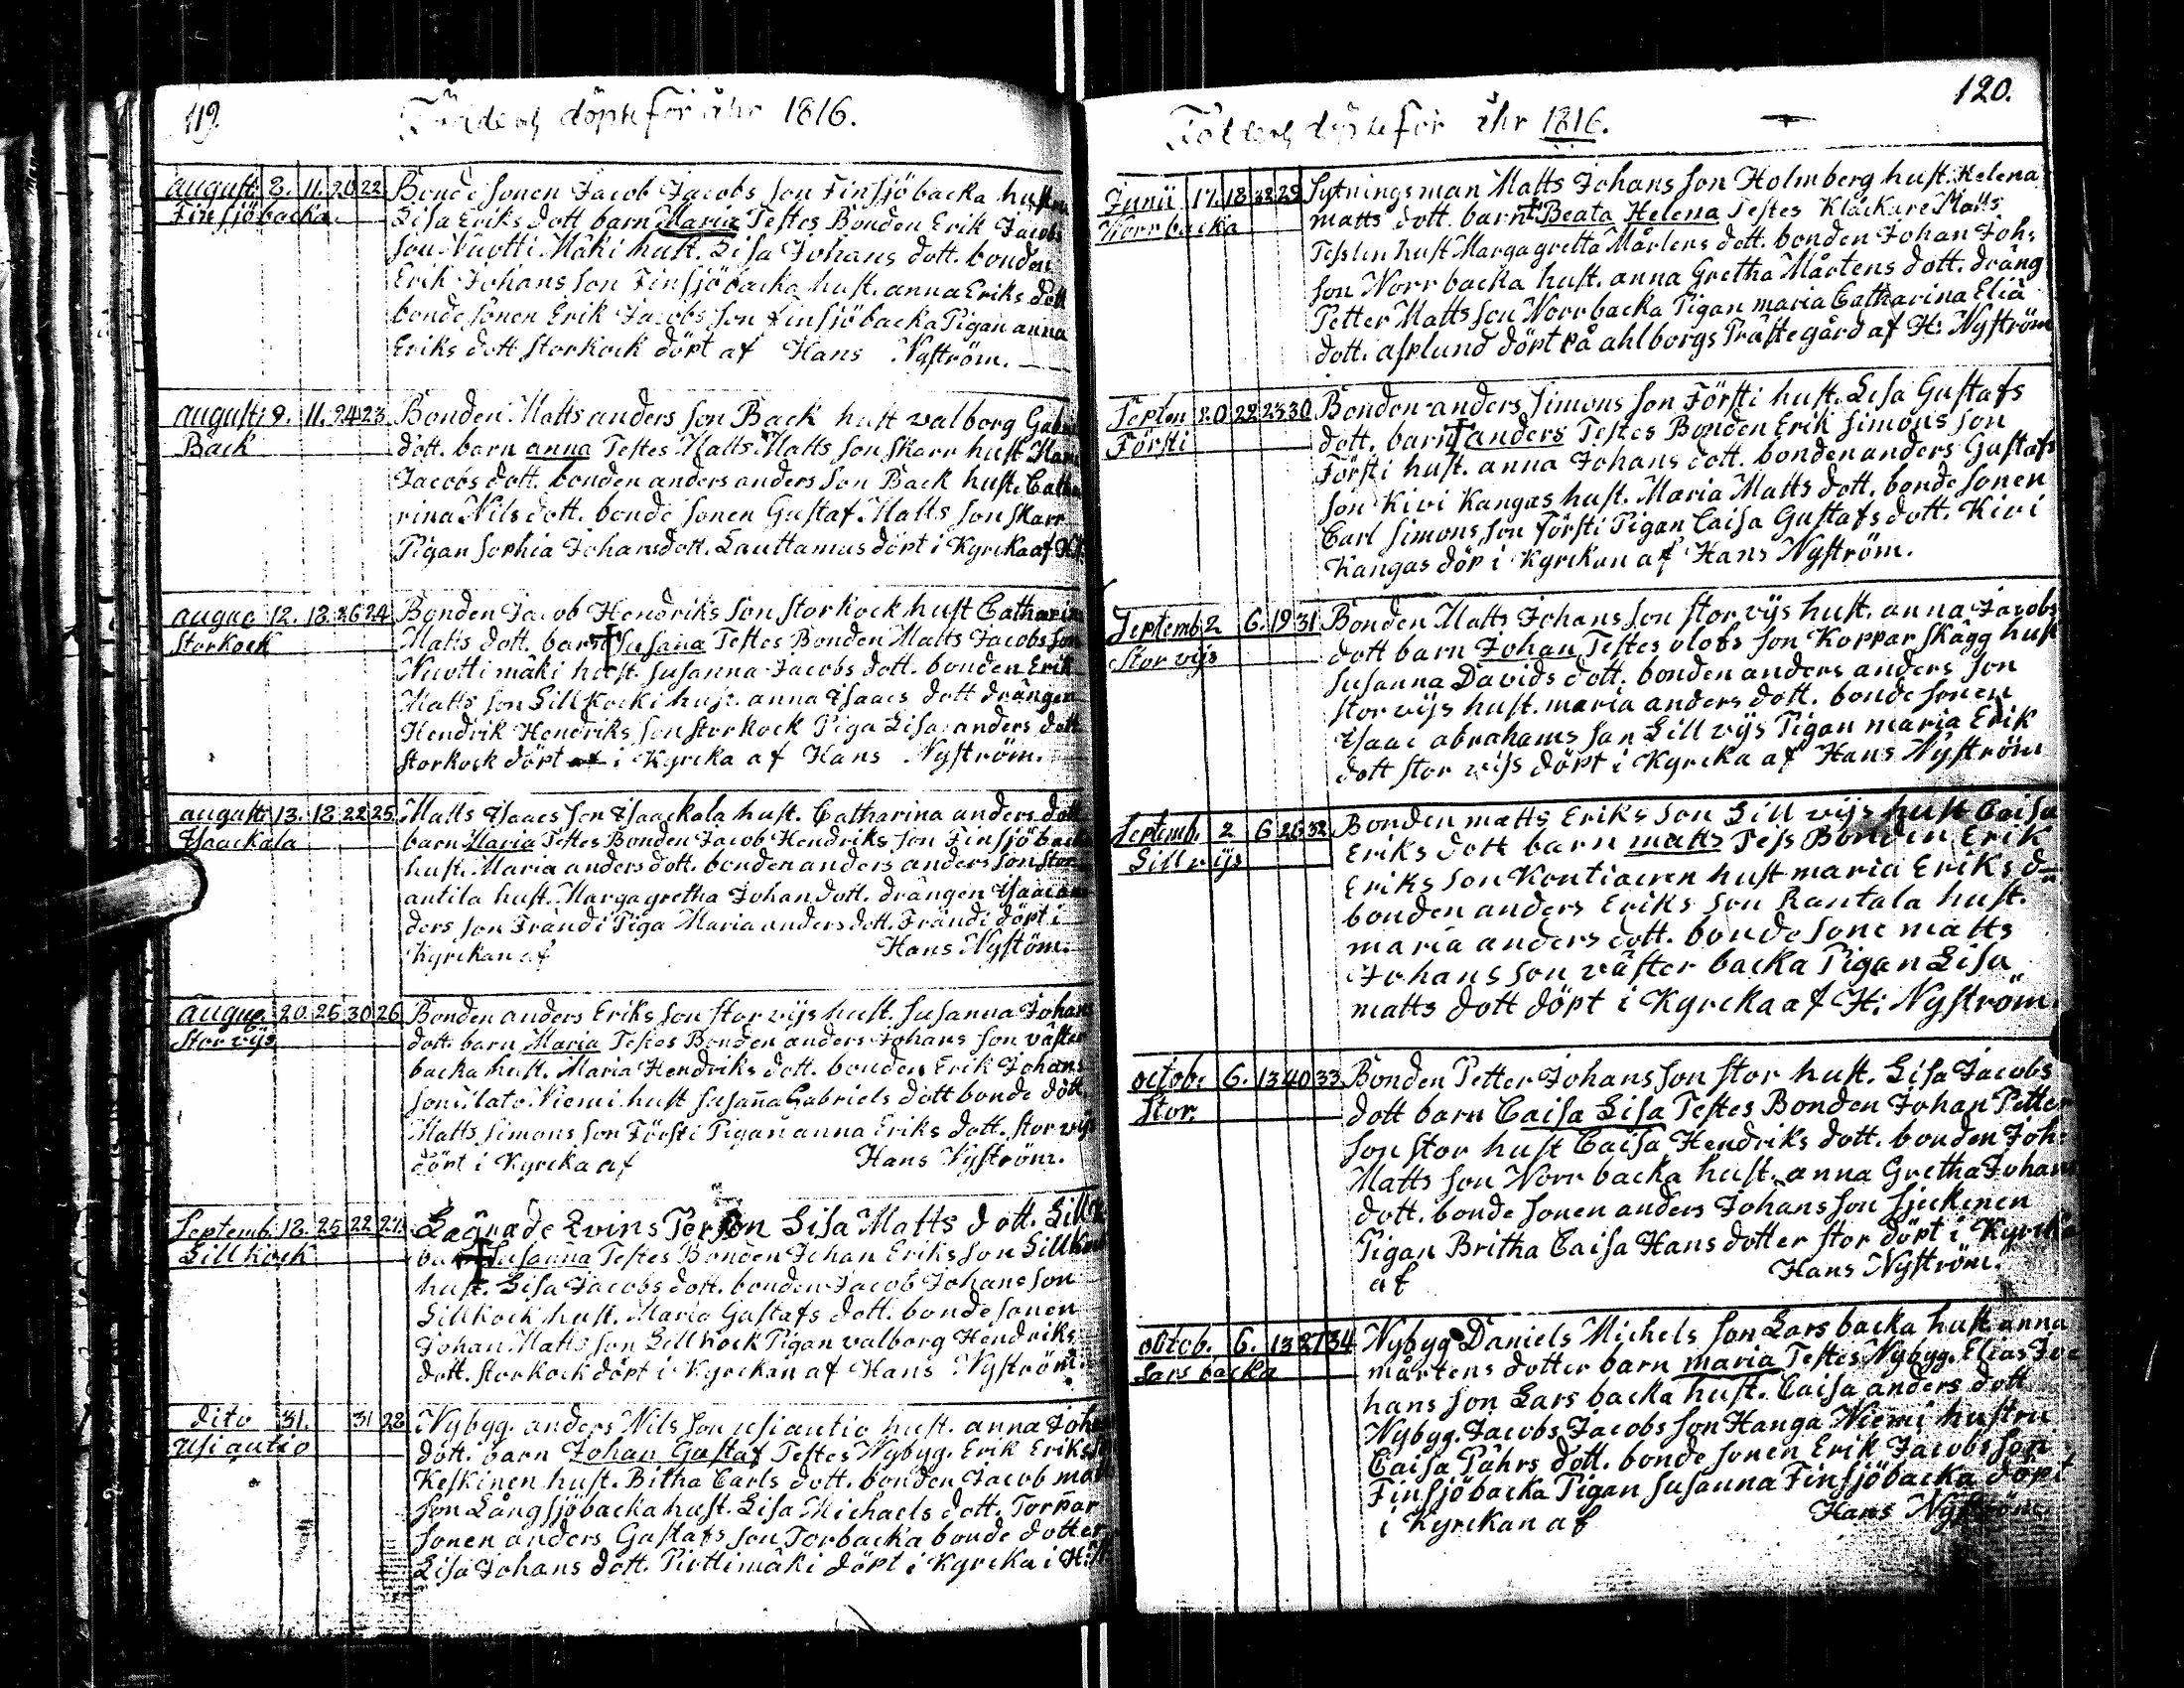 119.
Födde och döpte för åhr 1816.
august. 8. 11. 20 22 Bonde sonen Jacob Jacobs son Finsjöbacka hustru
Finsjöbacka Lisa Eriks dott barn Maria Testes Bonden Erik Jacobs
son Nuotti Mäki hust. Lisa Johans dott. bonden
Erik Johans son Finsjöbacka hust. anna Eriks dott
bonde sonen Erik Jacobs son Finsjöbacka Pigan anna
Eriks dott Storkock döpt af Hans Nyström.
august. 9. 11. 24 23 Bonden Matts anders son Back hust valborg
Back dott. barn anna Testes Matts Matts son Skarr hust
Jacobs dott. bonden anders anders son Back hust. Catha
rina Nils dott. bonde sonen Gustaf Matts son Skarr
Pigan Sophia Johans dott. Lauttamus döpt i Kyrcka af
augus 12. 18. 26 24 Bonden Jacob Hendriks son Storkock hust Catharin
Storkock Matts dott. barn Susana Testes Bonden Matts Jacobs son
Nuotti mäki hust. Susanna Jacobs dott. bonden Erik
Matts son Lill Kocki hust. anna Isaacs dott drängen
Hendrik Hendriks son Storkock Piga Lisa anders dott
Storkock döpt af i Kyrcka af Hans Nyström.
augusti 13. 18 22 25 Matts Isaacs son Isaackala hust. Catharina anders dott
Isaackala barn Maria Testes Bonden Jacob Hendriks son Finsjöbacka
hust. Maria anders dott. bonden anders anders son Stor
antila hust. Margagretha Johan dott. drängen Isaac an
ders son Frändi Piga Maria anders dott. Frändi döpt i
Kyrckan af Hans Nyström.
augus 20 25 30 26 Bonden anders Eriks son Stor vijs hust. Susanna Johans
Stor vijs dott. barn Maria Testes Bonden anders Johans son väster
backa hust. Maria Hendriks dott. bonden Erik Johans
son Ülato Niemi hust Susanna Gabriels dott bonde dott
Matts Simons son Försti Pigan anna Eriks dott. Stor vijs
döpt i Kyrcka af Hans Nyström.
Septemb. 18. 25 22 27 Lägrade Qvins Person Lisa Matts dott. Lill
Lill kock barn Susanna Testes Bonden Johan Eriks son Lill Kock
hust. Lisa Jacobs dott. bonden Jacob Johans son
Lillkock hust. Maria Gustafs dott. bonde sonen
Johan Matts son Lill kock Pigan valborg Hendriks
dott. Storkock döpt i Kyrckan af Hans Nyström.
dito 31. 31 28 Nybyg. anders Nils son usiautio hust. anna Joh
usi autio dott. barn Johan Gustaf Testes Nybyg. Erik Eriks
Keskinen hust. Bitha Carls dott. bonden Jacob matt
son Långsjöbacka hust. Lisa Michaels dott. Torpar
sonen anders Gustafs son Torbacka bonde dotter
Lisa Johans dott. Piottimäki döpt i Kyrcka i H:
120.
Födde och döpte för åhr 1816.
Junii 17. 18 38 29 Sytningsman Matts Johans son Holmberg hust. Helena
Norrbacka matts dott. barn Beata Helena Testes Kläckare Matts
Tesslin hust Margagretta Mårtens dott. bonden Johan Joh:
son Norrbacka hust. anna Gretha Mårtens dott. dräng
Petter Matts son Norrbacka Pigan maria Catharina Eliä
dott. asplund döpt på ahlborgs Prästegård af H: Nyström
Septem 20 22 25 30 Bonden anders Simons son Försti hust. Lisa Gustafs
Försti dott. barn anders Testes Bonden Erik Simons son
Försti hust. anna Johans dott. bonden anders Gustafs
son Kivi Kangas hust. Maria Matts dott. bonde sonen
Carl Simons son Försti Pigan Caisa Gustafs dott. Kivi
Kangas döp i Kyrckan af Hans Nyström.
Septemb 2 6. 19 31 Bonden Matts Johans son Stor vijs hust. anna Jacobs
Stor vijs dott barn Johan Testes olofs son Koppar skägg hust
Susanna Davids dott. bonden anders anders son
Stor vijs hust. maria anders dott. bonde sonen
Isaac abrahams san Lill vijs Pigan maria Erik
dott Stor vijs döpt i Kyrcka af Hans Nyström
Septemb. 2 6 26 32 Bonden matts Eriks son Lill vijs hust Caisa
Lill vijs Eriks dott barn matts Tess Bonden Erik
Eriks son Kontiainen hust maria Eriks d
bonden anders Eriks son Rantala hust.
maria anders dott. bonde sone matts
Johans son väster backa Pigan Lisa
matts dott döpt i Kyrcka af H: Nyström
octob. 6. 13 40 33 Bonden Petter Johans son Stor hust. Lisa Jacobs
Stor. dott barn Caisa Lisa Testes Bonden Johan Petter
son Stor hust Caisa Hendriks dott. bonden Joh:
Matts son Norr backa hust. anna Gretha Johans
dott. bonde sonen anders Johans son Sjuckinen
Pigan Britha Caisa Hans dotter Stor döpt i Kyrcka
af Hans Nyström.
obtob. 6. 13 27 34 Nybyg Daniels Michels son Lars backa hust anna
Lars backa mårtens dotter barn maria Testes Nybyg. Elias Jo
hans son Lars backa hust. Caisa anders dott
Nybyg. Jacobs Jacobs son Hanga Niemi hustru
Caisa Påhrs dott. bonde sonen Erik Jacobs son
Finsjöbacka Pigan Susanna Finsjöbacka döpt
i Kyrckan af Hans Nyström